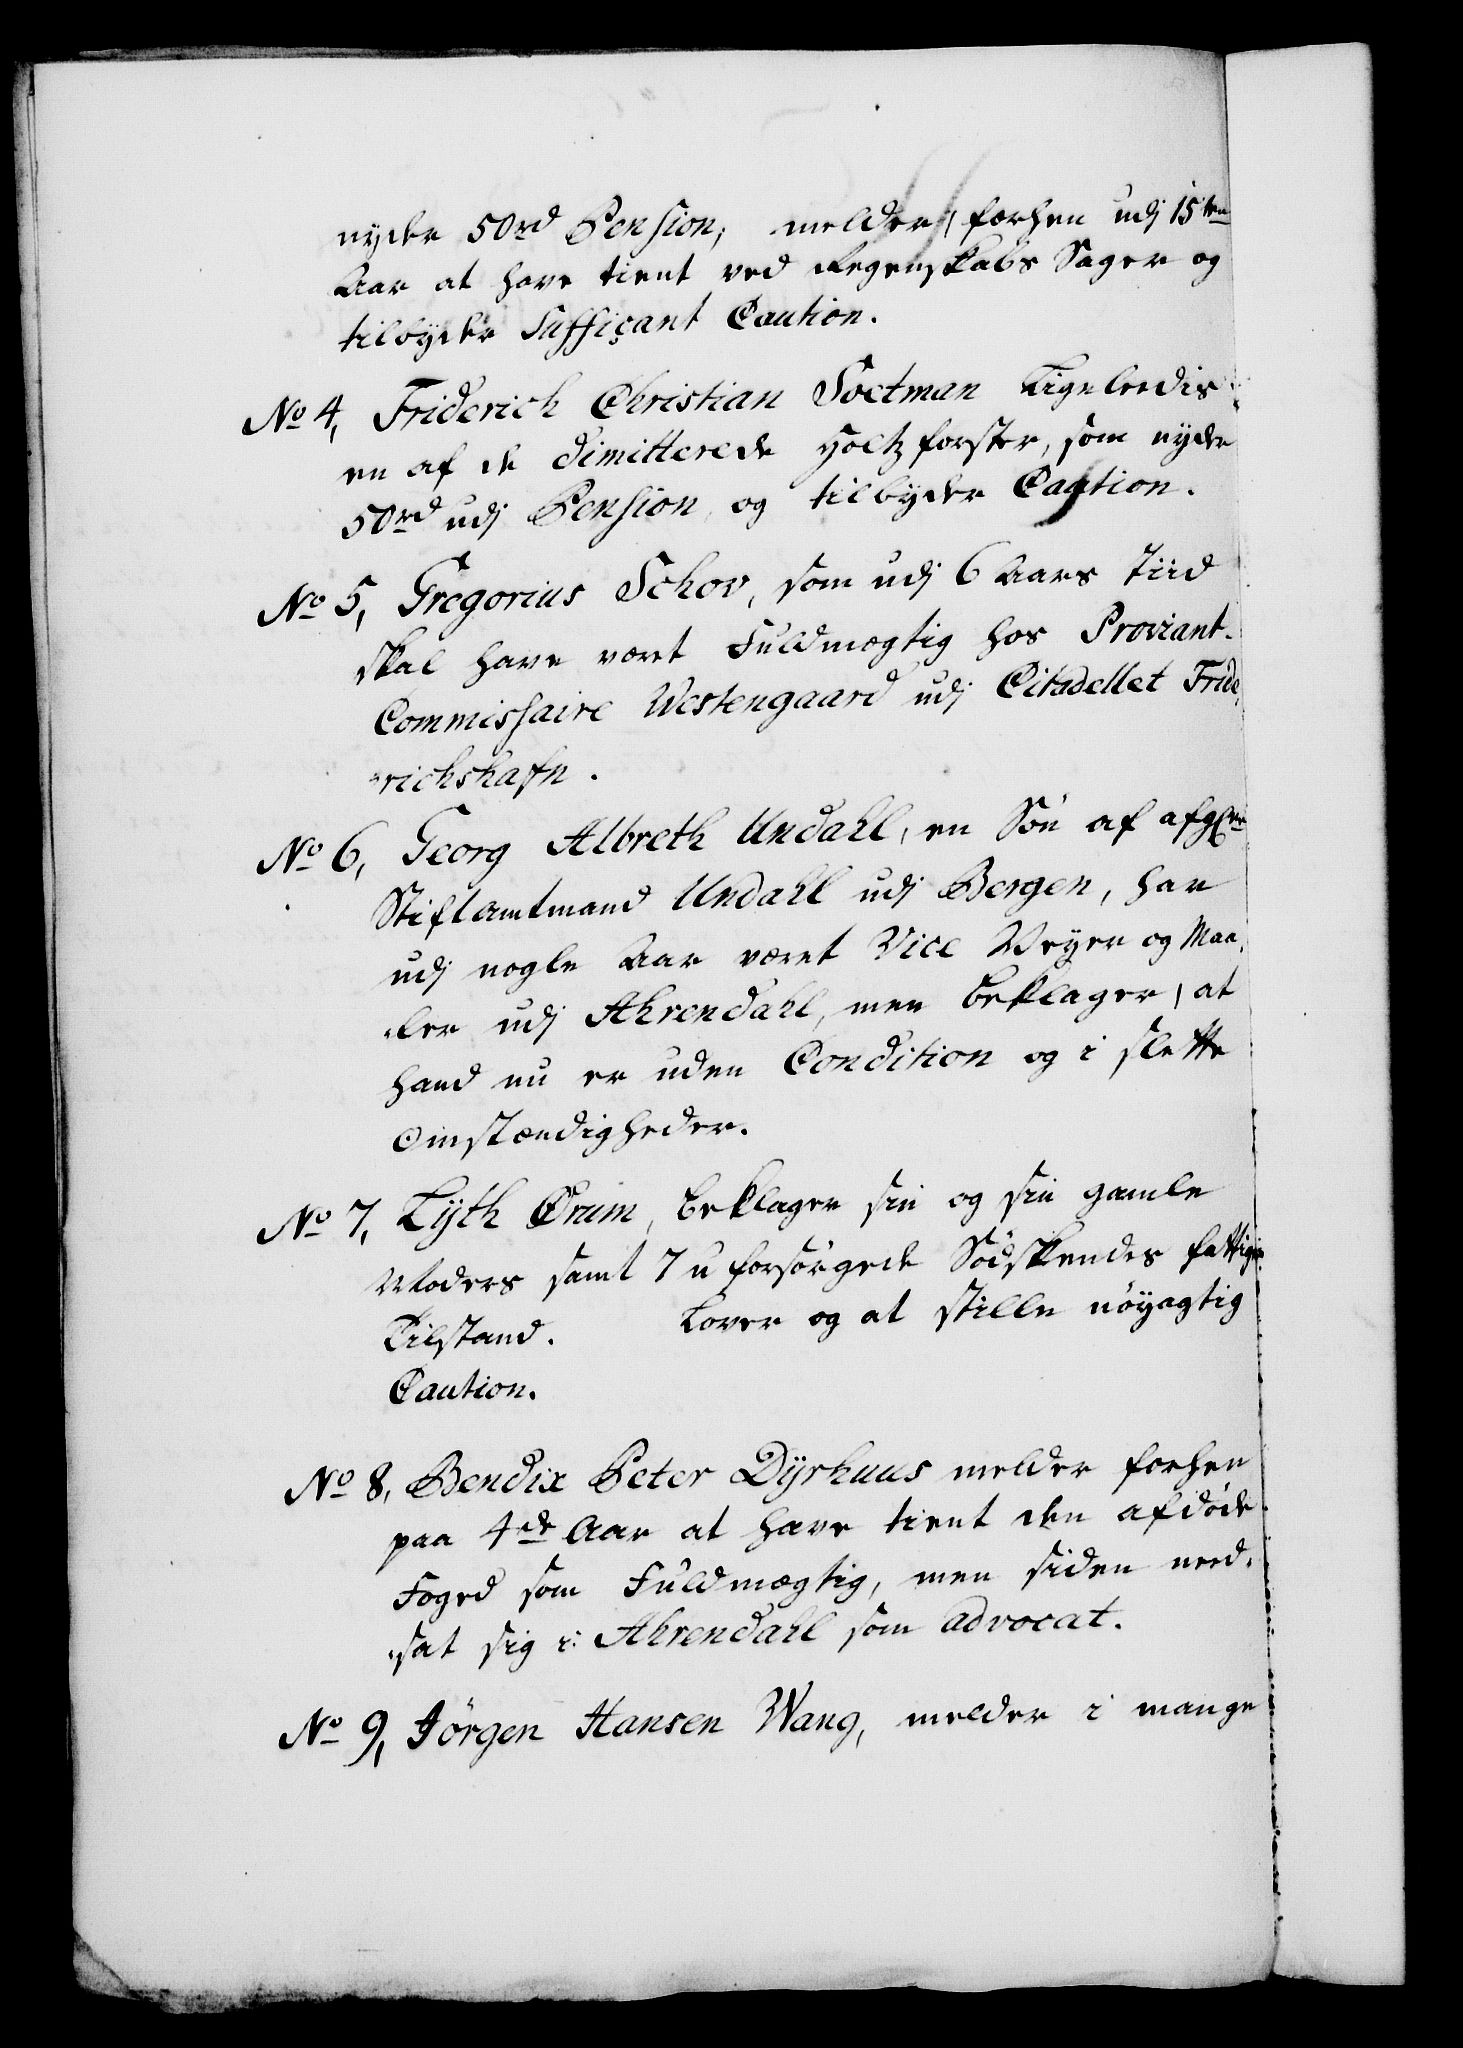 nyder 50rd Pension, melder, forhen udj 15ten
Aar at have tient ved Regenskabs Sager og
tilbyder Suffiçant Caution.
No 4, Friderich Christian Soetman Ligeleedis
en af de dimitterede Holtzforster, som nyder
50rd udj Pension, og tilbyder Caution.
No 5, Gregorius Schov, som udj 6 Aars Tiid
skal have været Fuldmægtig hos Proviant-
Commissaire Westengaard udj Citadellet Fride,
richshafn.
No 6, Georg Albreth Undahl, en Søn af afgl
Stiftamtmand Undahl udj Bergen, har
udj nogle Aar været Vice Veyer og Maa,
,ler udj Ahrendahl, men beklager, at
hand nu er uden Condition og i slette
Omstændigheder.
No 7, Lyth Ørum, beklager sin og sin gamle
Moders samt 7 uforsørgede Sødskendes fattige
Tilstand. Lover og at stille nøyagtig
Caution.
No 8, Bendix Peter Dyrhuus melder forhen
paa 4de Aar at have tient den afdøde
Foged som Fuldmægtig, men siden need,
,sat sig i Ahrendahl som advocat.
No 9, Jörgen Hansen Wang, melder i mange